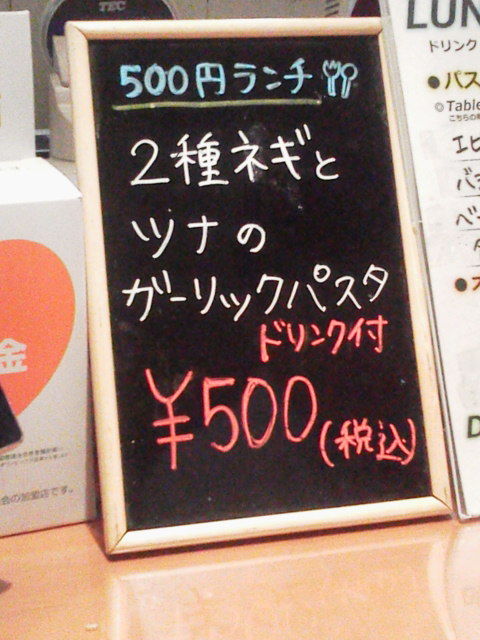 TEC
500円ランチ
2種ネギと
ツナの
ガーリックパスタ
ドリンク付
¥500(税込)
LUN
ドリンク
●パス
◎Table
こちらの
エビ
●
金
会の加盟店です。